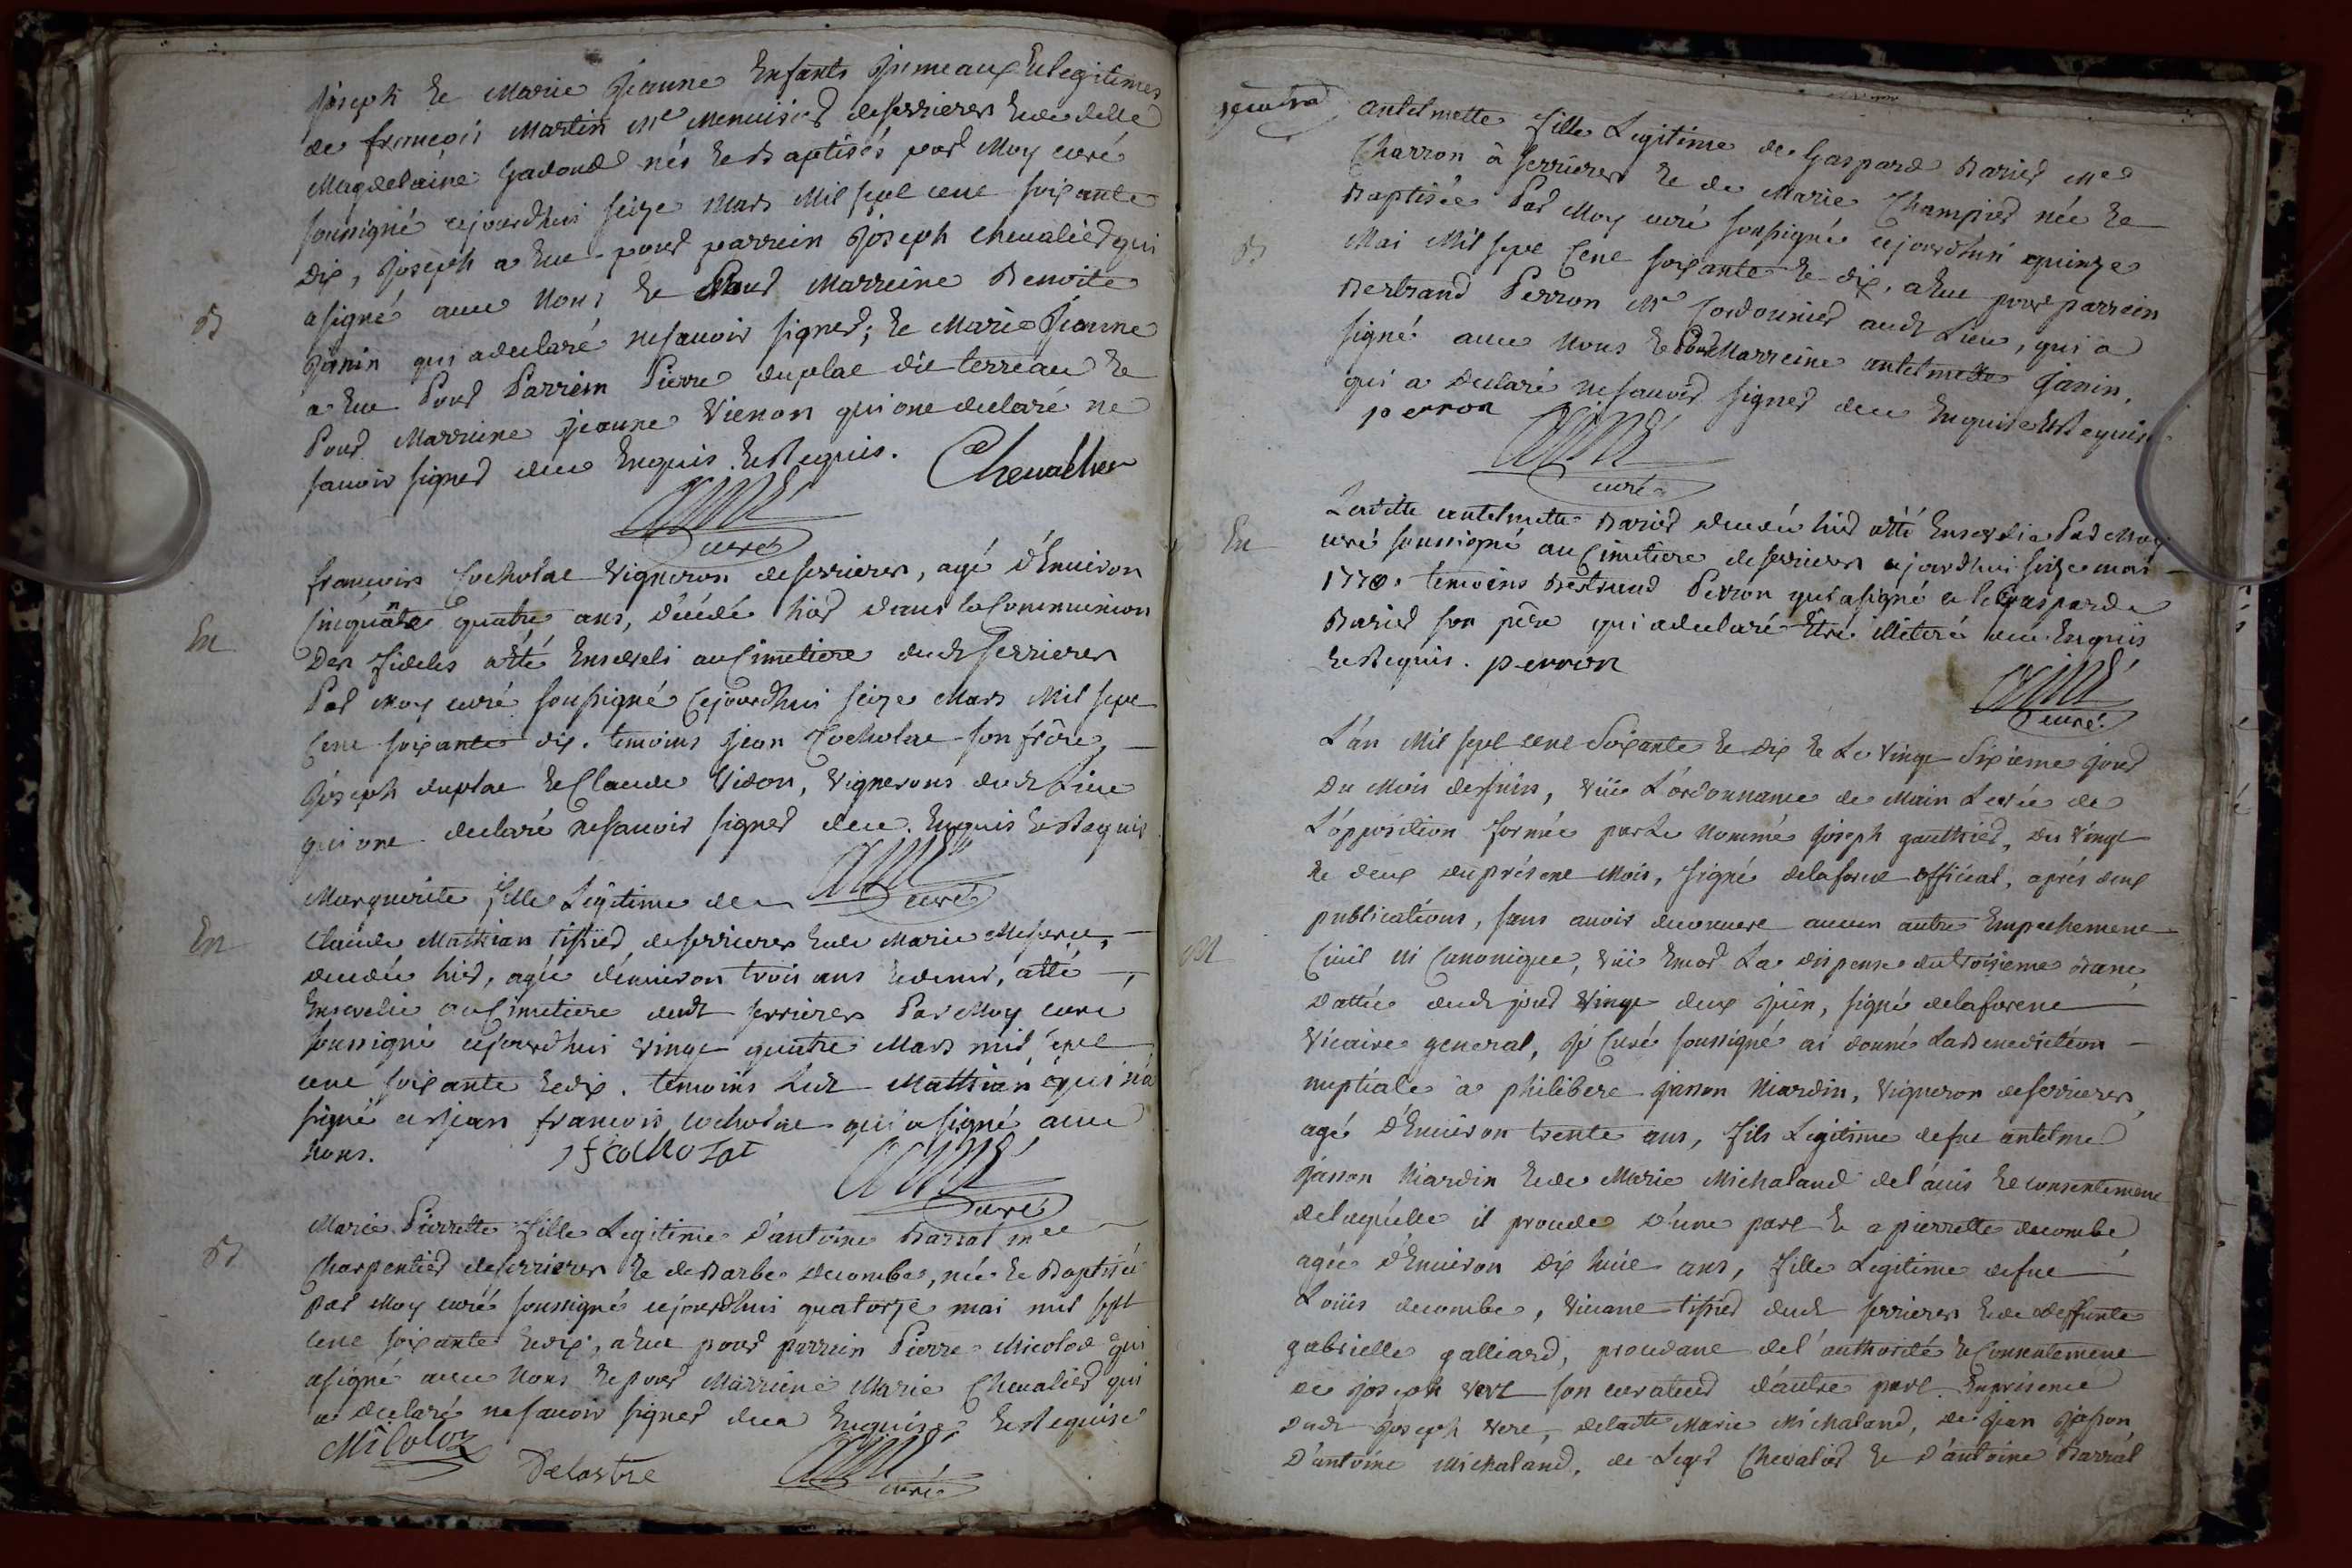 Joseph Et Marie Jeanne Enfants Jumeaux Et legitimes
de françois Martin Me Menuisier de serrieres Et de delle
Magdelaine Gadoud nés Et Baptisés par Moy curé
soussigné cejourdhui seize Mars Mil sept cent soixante
Dix, Joseph a Eut pour parrein Joseph Chevalier qui
a signé avec Nous Et pour Marreine Benoite
Janin qui a declaré ne savoir signer; Et Marie Jeanne
B
a Eut Pour Parrein Pierre duplat dit terreau Et
Pour Marreine jeanne Vienon qui ont declaré ne
savoir signer de ce Enquis Et Requis. Chevallier
curé
françois Cocholat Vigneron de serrieres, agé d'Environ
Cinquante quatre ans, décédé hier dans la Communion
En
Des fideles a été Enseveli au Cimetiere dudt serrieres
Par Moy curé soussigné Cejourdhui seize Mars Mil sept
Cent soixante dix. temoins Jean Cocholat son frère,
Joseph duplat Et Claude Vidon, Vignerons dudt Lieu
qui ont declaré ne savoir signer de ce Enquis Et Requis
curé
Marguerite fille Legitime de
En
Claude Mathian tissier de serrieres Et de Marie
decedée hier, agée d'environ trois ans Et demi, a été
Ensevelie au Cimetiere dudt serrieres Par Moy curé
soussigné cejourdhui vingt quatre Mars mil sept
cent soixante Et dix. temoins Ledt Mathian qui n'a
signé et jean françois cocholat qui a signé avec
Nous. J f cochozat
curé
Marie Pierrette fille Legitime D'antoine Barral me
B
Charpentier de serrieres Et de Barbe decombe, née Et Baptisée
Par Moy curé soussigné cejourdhui quatorze mai mil sept
cent soixante Et dix, a Eut pour parrein Pierre Micolod qui
a signé avec Nous Et pour Marreine Marie Chevalier qui
a declaré ne savoir signer de ce Enquise Et Requise
Micoloz Delastre
curé
antelmette fille Legitime de Gaspard Barier Me
Charron à serrieres Et de Marie Champier née Et
Baptisée Par Moy curé soussigné cejourdhui quinze
B
Mai Mil sept Cent soixante Et dix, a Eut pour parrein
Bertrand Perron Me Cordonnier audt Lieu, qui a
signé avec Nous Et Pour Marreine antelmette Janin,
qui a declaré ne savoir signer de ce Enquise Et Requise
perron
curé
Laditte antelmette Barier decedée hier a été Ensevelie Par Moy
En
curé soussigné au Cimetiere de serrieres cejourdhui seize mai
1770. temoins Bertrand Perron qui a signé et le Gaspard
Barier son père qui a declaré Etre illiteré de ce Enquis
Et Requis. perron
curé
L'an Mil sept cent Soixante Et Dix Et Le Vingt Sixieme jour
Du Mois de juin, vüe L'ordonnance de Main Levée de
L'opposition formée par Le nommé Joseph gauthier, du Vingt
Et deux du présent Mois, signé delaforest official, aprés deux
publications, sans avoir decouvert aucun autre Empechement
M
Civil ni Canonique, vüe Encor La dispense du troisieme banc
dattée dudt jour Vingt deux juin, signé delaforest
Vicaire general, Je Curé soussigné ai donné La Benediction
nuptiale à philibert janon Niardin, Vigneron de serrieres,
agé d'Environ trente ans, fils Legitime de feu antelme
janon Niardin Et de Marie Michaland de l'avis Et consentement
de laquelle il procede d'une part Et a pierrette decombe
agée d'Environ dix huit ans, fille Legitime de feu
Loüis decombe, vivant tissier dudt serrieres Et de deffunte
gabrielle galliard, procedant de l'authorité Et Consentement
de joseph vert son curateur d'autre part. En presence
dudt Joseph Vert, de laditte Marie Michaland, de jean janon,
D'antoine Michaland, de Leger Chevalier Et d'antoine Barral